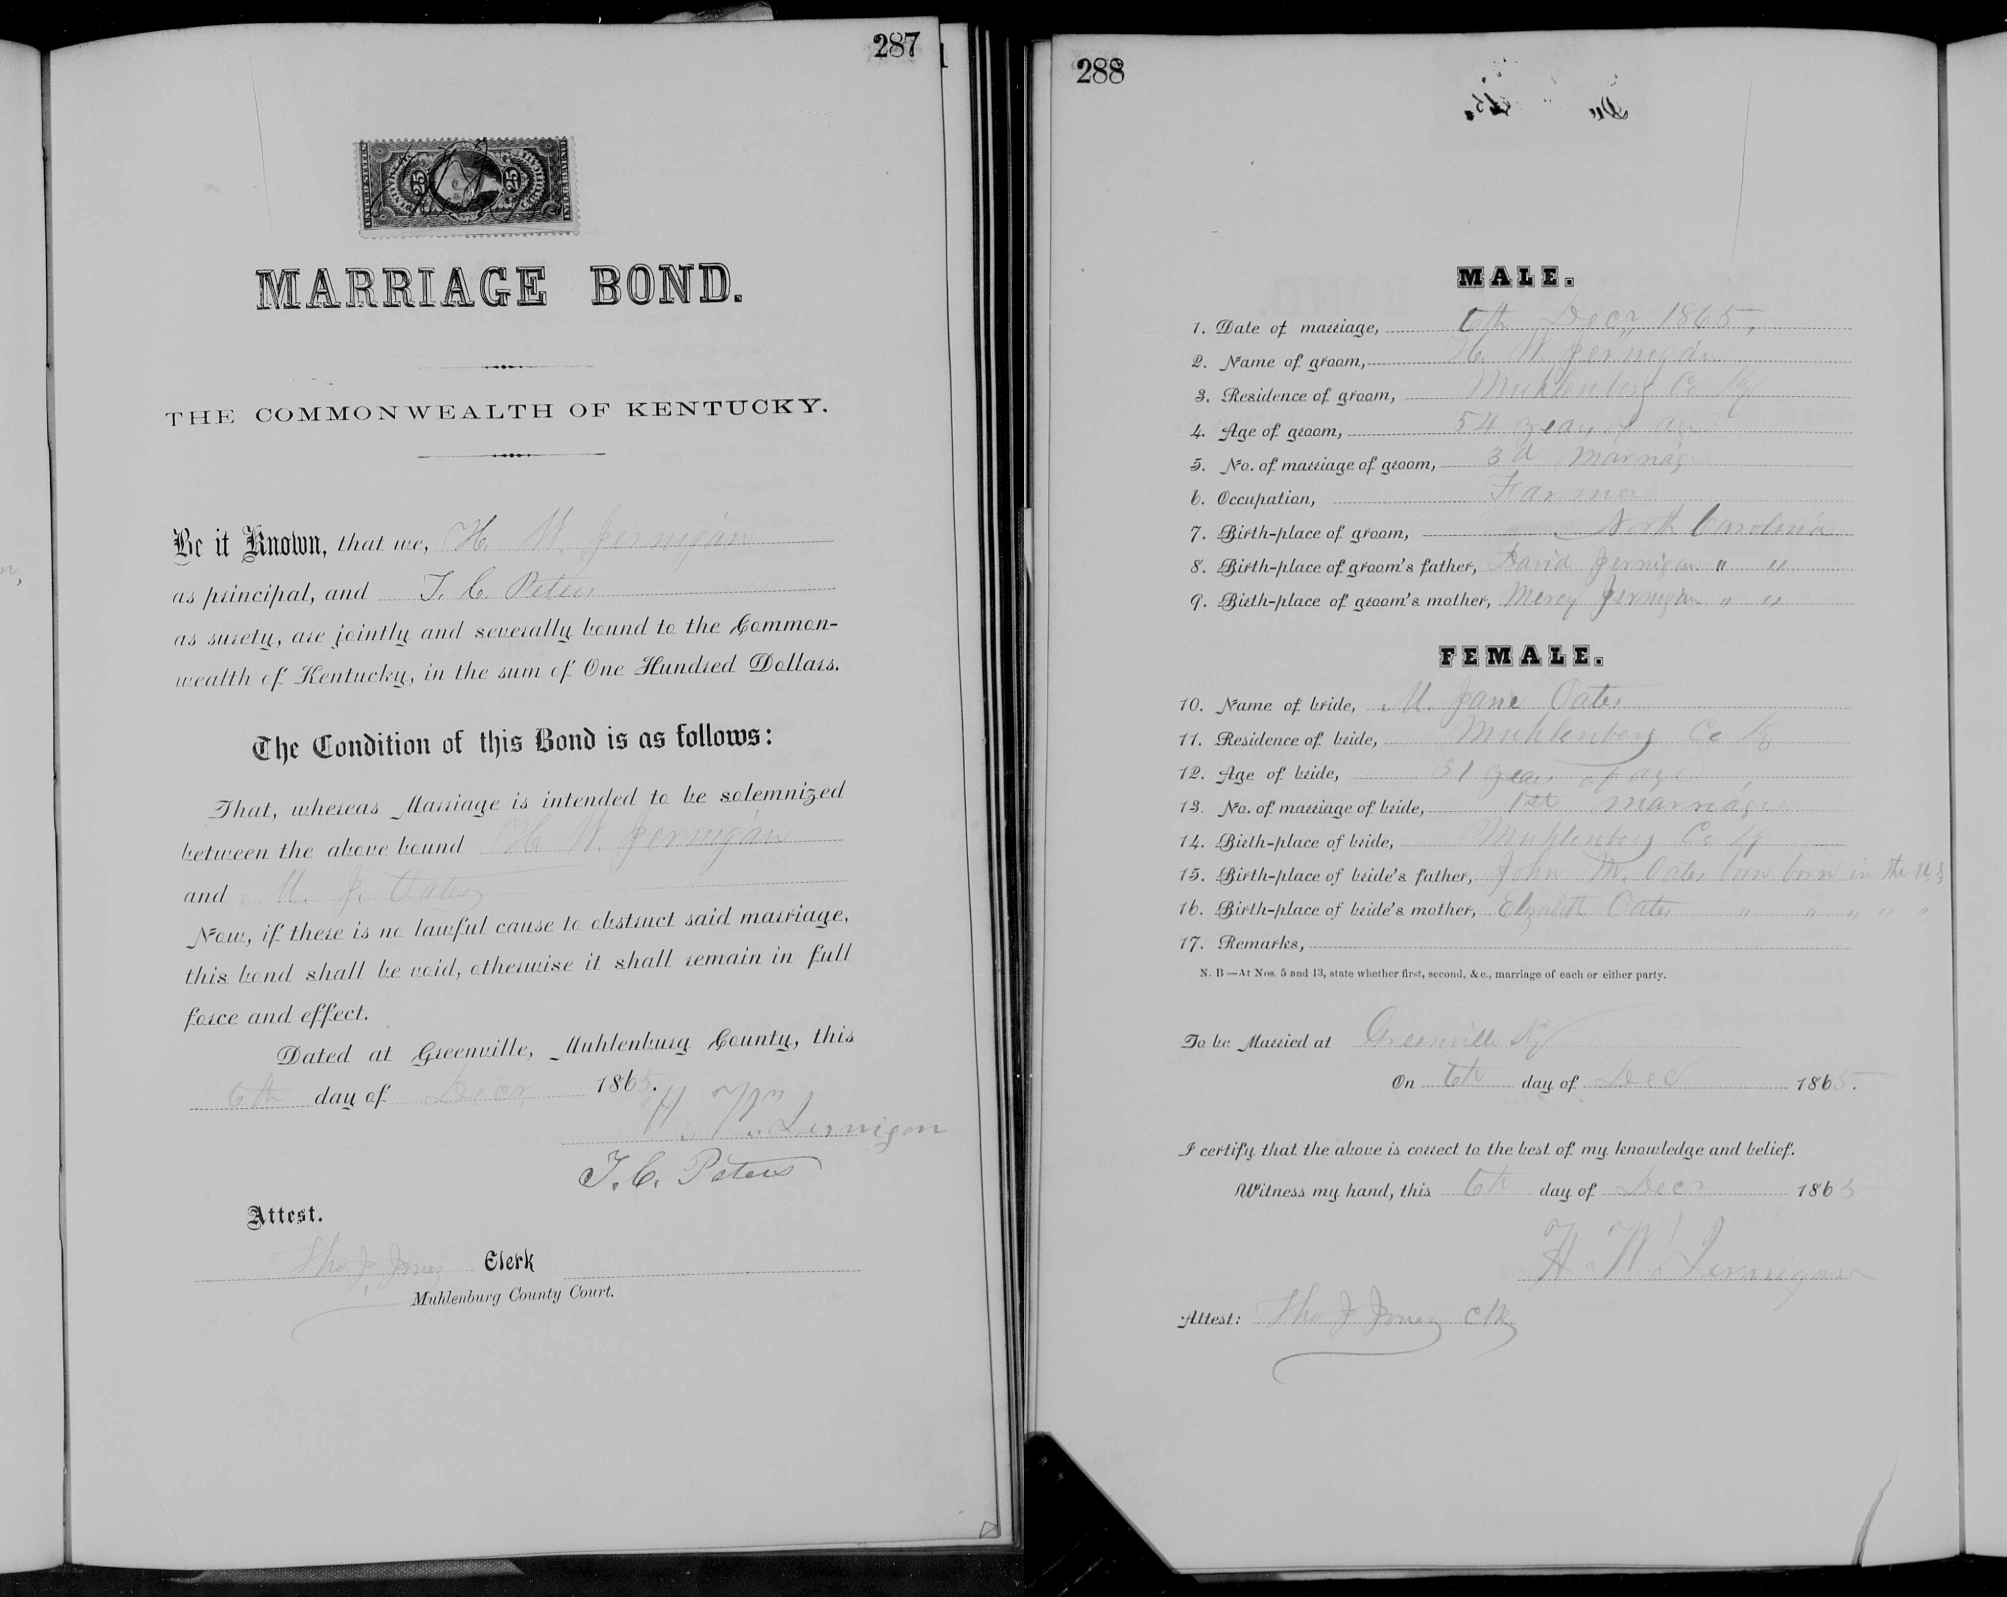 287
UNITED STATES
25
25
INTER. REVENUE
MARRIAGE BOND.
THE COMMONWEALTH OF KENTUCKY.
Be it Known, that we, H. W. Jernigan
as principal, and T. C. Peters
as surety, are jointly and severally bound to the Common-
wealth of Kentucky, in the sum of One Hundred Dollars.
The Condition of this Bond is as follows:
That, whereas Marriage is intended to be solemnized
between the above bound H W. Jernigan
and M. J. Oates
Now, if there is no lawful cause to obstruct said marriage,
this bond shall be void, otherwise it shall remain in full
force and effect.
Dated at Greenville, Muhlenburg County, this
6th day of Decr 1865.
H. Wm. Jernigan
T. C. Peters
Attest.
Tho J. Jones Clerk
Muhlenburg County Court.
288
MALE.
1. Date of marriage, 6th Decr 1865,
2. Name of groom, H. W. Jernigan
3. Residence of groom, Muhlenberg Co Ky
4. Age of groom, 54 years of age
5. No. of marriage of groom, 3d marriage
6. Occupation, Farmer
7. Birth-place of groom, North Carolina
8. Birth-place of groom's father, David Jernigan " "
9. Birth-place of groom's mother, Mercy Jernigan " "
FEMALE.
10. Name of bride, M. Jane Oates
11. Residence of bride, Muhlenberg Co Ky
12. Age of bride, 31 years of age
13. No. of marriage of bride, 1st marriage
14. Birth-place of bride, Muhlenberg Co Ky
15. Birth-place of bride's father, John M. Oates born born in the U S
16. Birth-place of bride's mother, Elizabeth Oates " " " " "
17. Remarks,
N. B—At Nos. 5 and 13, state whether first, second, &c., marriage of each or either party.
To be Married at Greenville Ky
On 6th day of Dec 1865.
I certify that the above is correct to the best of my knowledge and belief.
Witness my hand, this 6th day of Decr 1865
H. W. Jernigan
Attest: Tho J Jones Clk